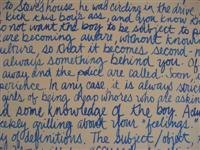 to Steve's house, he was circling in the drive
kick this boy's ass, and you know th
not want the boy to be subject to p
are becoming aware, without knowin
culture, so that it becomes second
always something behind you. Of
away and the police are called. Soon,
perience. In any case, it is always struc
girls of being cheap whores who are askin
d some knowledge of the boy. Adu
skly quilling about your "feelings."
y of definitions. The subject/object,